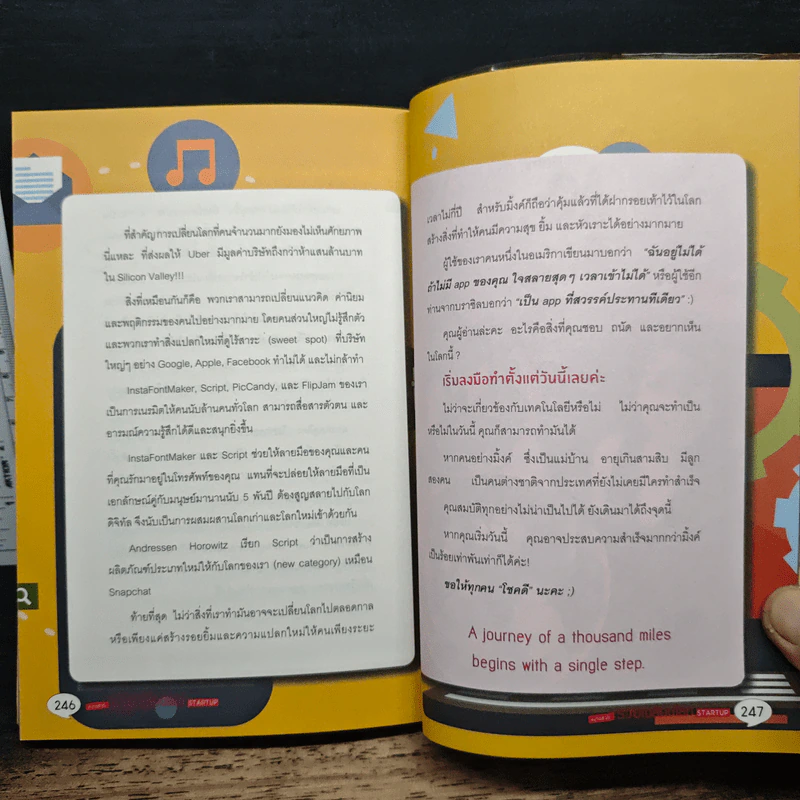 ที่สำคัญการเปลี่ยนโลกที่คนจำนวนมากยังมองไม่เห็นศักยภาพ
นี่แหละ ที่ส่งผลให้ Uber มีมูลค่าบริษัทถึงกว่าห้าแสนล้านบาท
ใน Silicon Valley!!!
สิ่งที่เหมือนกันก็คือ พวกเราสามารถเปลี่ยนแนวคิด ค่านิยม
และพฤติกรรมของคนไปอย่างมากมาย โดยคนส่วนใหญ่ไม่รู้สึกตัว
และพวกเราทำสิ่งแปลกใหม่ที่ดูไร้สาระ (sweet spot) ที่บริษัท
ใหญ่ๆ อย่าง Google, Apple, Facebook ทำไม่ได้ และไม่กล้าทำ
InstaFontMaker, Script, PicCandy, และ FlipJam ของเรา
เป็นการเนรมิตให้คนนับล้านคนทั่วโลก สามารถสื่อสารตัวตน และ
อารมณ์ความรู้สึกได้ดีและสนุกยิ่งขึ้น
InstaFontMaker และ Script ช่วยให้ลายมือของคุณและคน
ที่คุณรักมาอยู่ในโทรศัพท์ของคุณ แทนที่จะปล่อยให้ลายมือที่เป็น
เอกลักษณ์คู่กับมนุษย์มานานนับ 5 พันปี ต้องสูญสลายไปกับโลก
ดิจิทัล จึงนับเป็นการผสมผสานโลกเก่าและโลกใหม่เข้าด้วยกัน
Andressen Horowitz เรียก Script ว่าเป็นการสร้าง
ผลิตภัณฑ์ประเภทใหม่ให้กับโลกของเรา (new category) เหมือน
Snapchat
ท้ายที่สุด ไม่ว่าสิ่งที่เราทำมันอาจจะเปลี่ยนโลกไปตลอดกาล
หรือเพียงแค่สร้างรอยยิ้มและความแปลกใหม่ให้คนเพียงระยะ
246
STARTUP
เวลาไม่กี่ปี สำหรับมิ้งค์ก็ถือว่าคุ้มแล้วที่ได้ฝากรอยเท้าไว้ในโลก
สร้างสิ่งที่ทำให้คนมีความสุข ยิ้ม และหัวเราะได้อย่างมากมาย
ผู้ใช้ของเราคนหนึ่งในอเมริกาเขียนมาบอกว่า "ฉันอยู่ไม่ได้
ถ้าไม่มี app ของคุณ ใจสลายสุดๆ เวลาเข้าไม่ได้" หรือผู้ใช้อีก
ท่านจากบราซิลบอกว่า "เป็น app ที่สวรรค์ประทานทีเดียว" :)
คุณผู้อ่านล่ะคะ อะไรคือสิ่งที่คุณชอบ ถนัด และอยากเห็น
ในโลกนี้ ?
เริ่มลงมือทำตั้งแต่วันนี้เลยค่ะ
ไม่ว่าจะเกี่ยวข้องกับเทคโนโลยีหรือไม่ ไม่ว่าคุณจะทำเป็น
หรือไม่ในวันนี้ คุณก็สามารถทำมันได้
หากคนอย่างมิ้งค์ ซึ่งเป็นแม่บ้าน อายุเกินสามสิบ มีลูก
สองคน เป็นคนต่างชาติจากประเทศที่ยังไม่เคยมีใครทำสำเร็จ
คุณสมบัติทุกอย่างไม่น่าเป็นไปได้ ยังเดินมาได้ถึงจุดนี้
หากคุณเริ่มวันนี้ คุณอาจประสบความสำเร็จมากกว่ามิ้งค์
เป็นร้อยเท่าพันเท่าก็ได้ค่ะ!
ขอให้ทุกคน "โชคดี" นะคะ ;)
A journey of a thousand miles
begins with a single step.
STARTUP
247